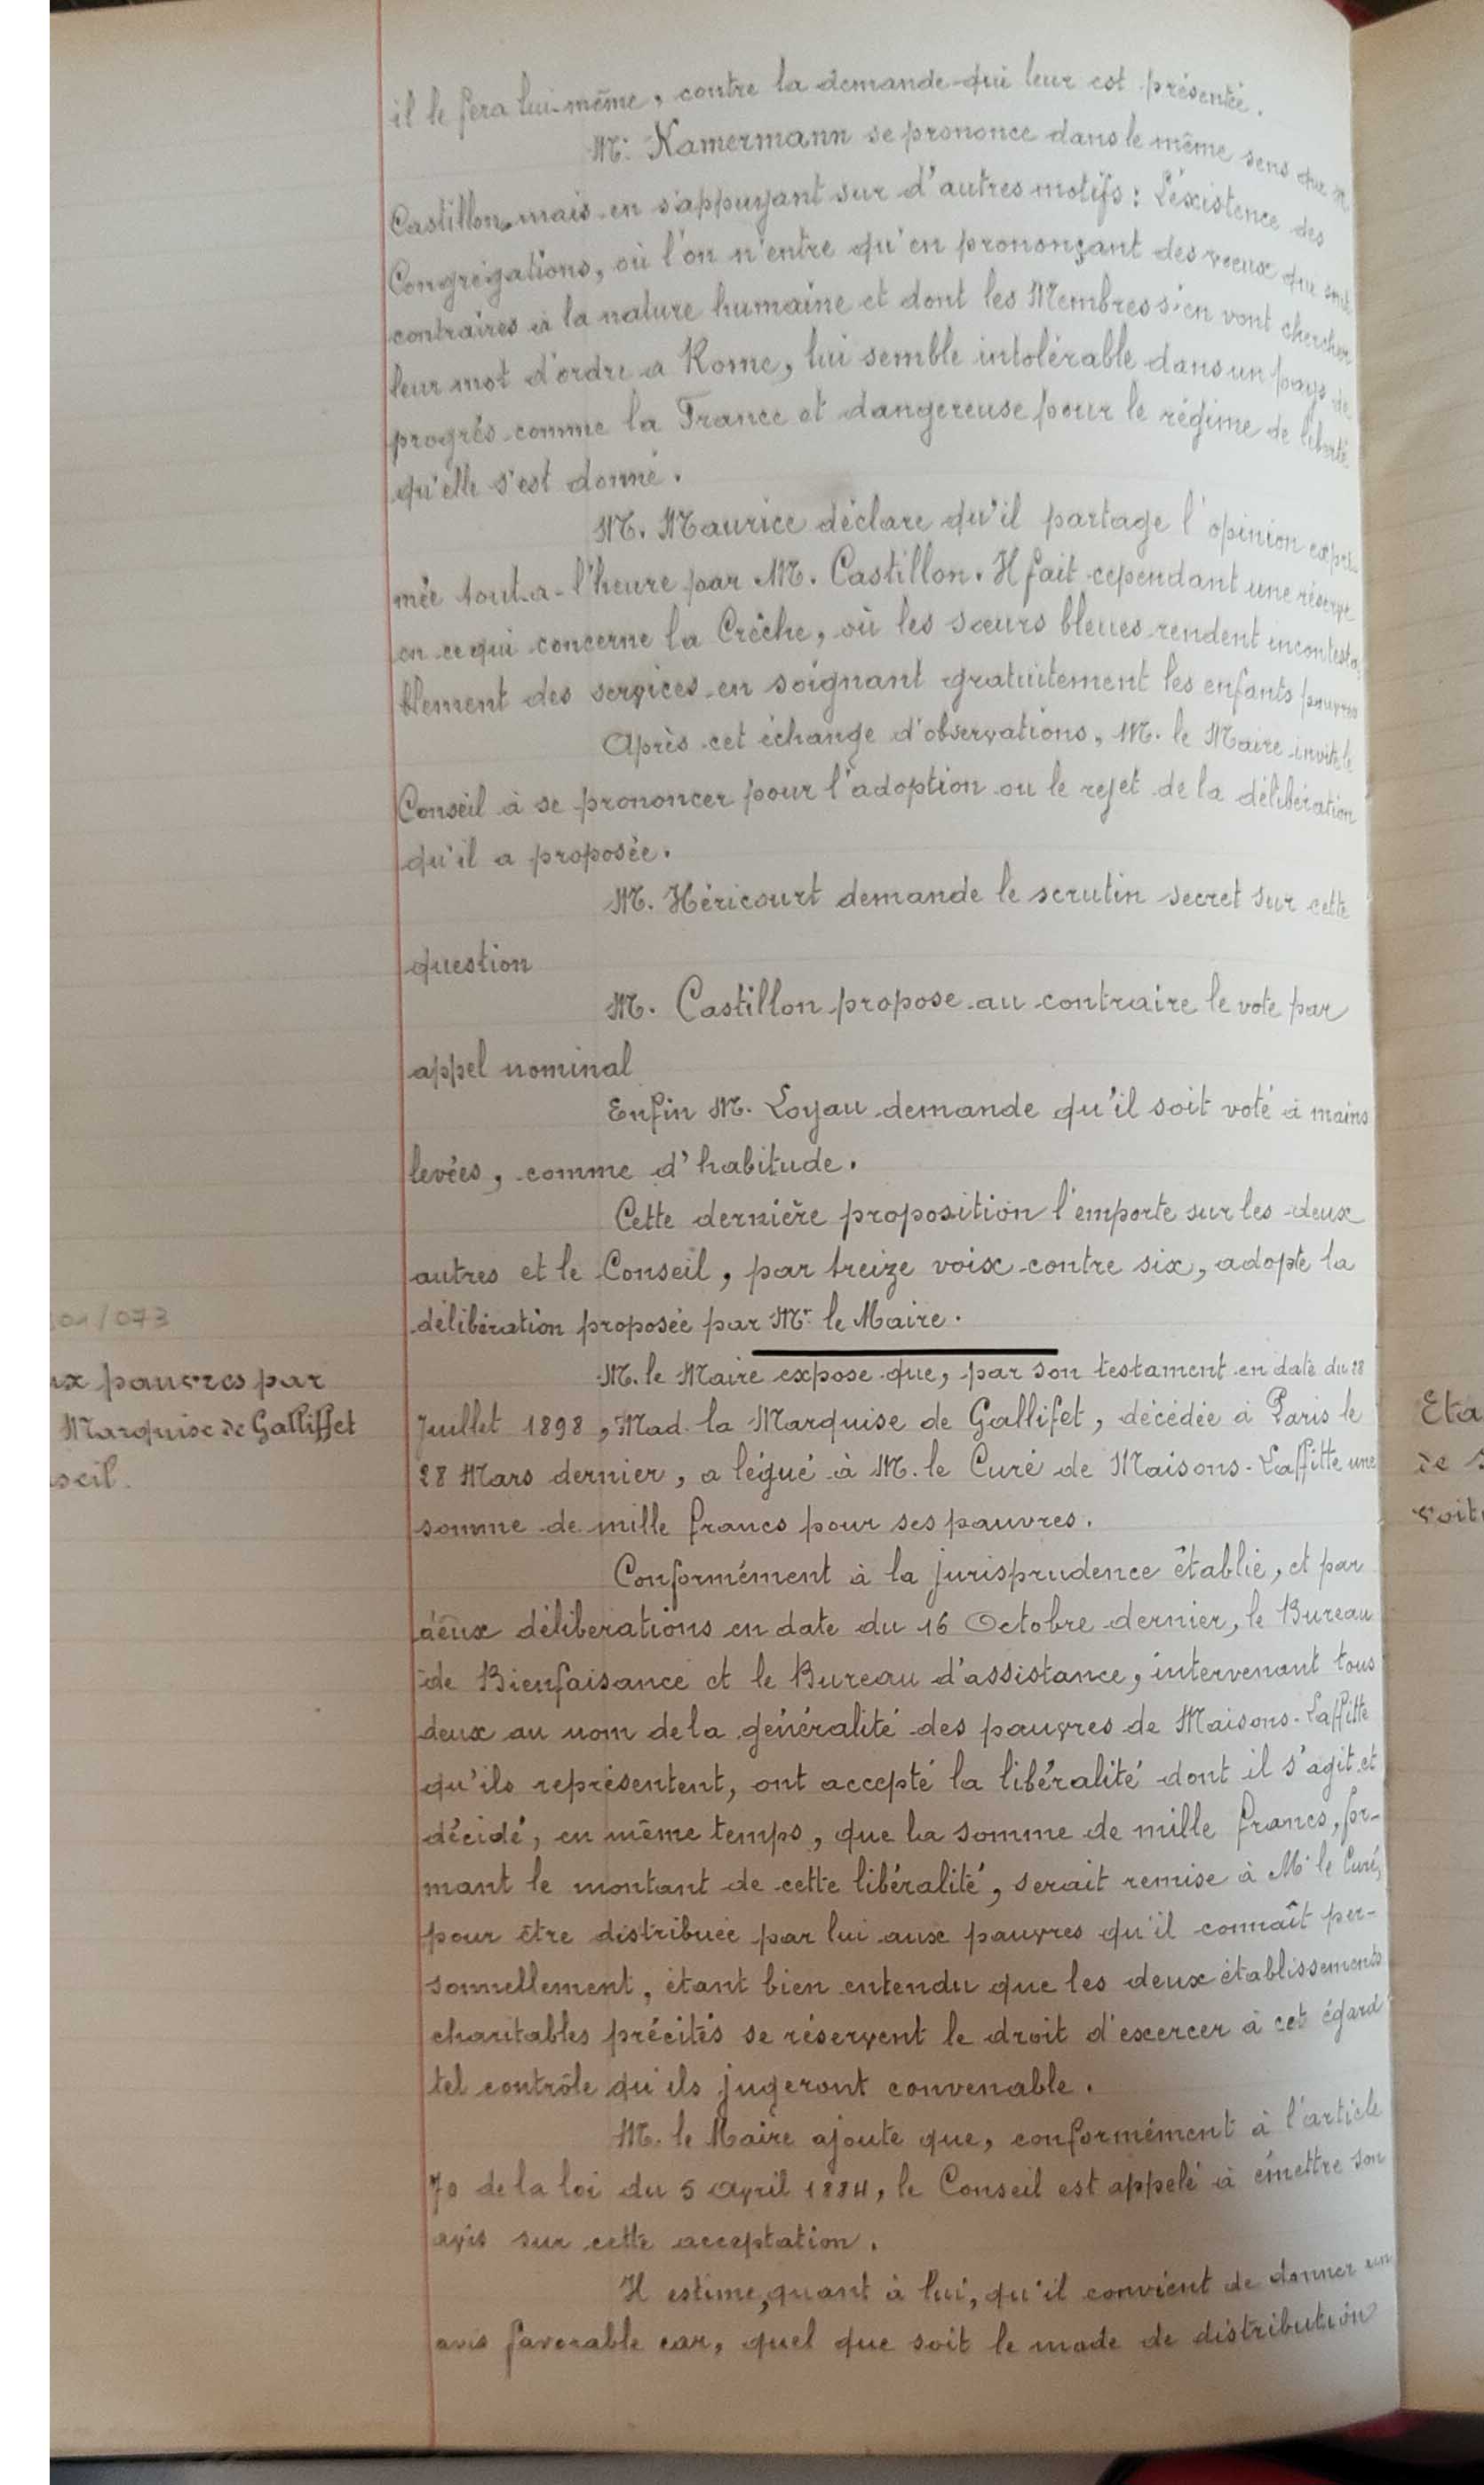 il le fera lui-même, contre la demande qui leur est présentée.
Mr. Kamermann se prononce dans le même sens que M
Castillon, mais en s'appuyant sur d'autres motifs : L'éxistence des
Congrégations, où l'on n'entre qu'en prononçant des voeux qui sont
contraires à la nature humaine et dont les Membres s'en vont chercher
leur mot d'ordre a Rome, lui semble intolérable dans un pays de
progrès comme la France et dangereuse pour le régime de liberté
qu'elle s'est donné.
M. Maurice déclare qu'il partage l'opinion expri-
mée tout-a-l'heure par M. Castillon. Il fait cependant une réserve
en ce qui concerne la Crèche, où les sœurs bleues rendent incontesta-
blement des services en soignant gratuitement les enfants pauvres
Après cet échange d'observations, M. le Maire invite le
Conseil à se prononcer pour l'adoption ou le rejet de la délibération
qu'il a proposée.
M. Héricourt demande le scrutin secret sur cette
question
M. Castillon propose au contraire le vote par
appel nominal
Enfin M. Loyau demande qu'il soit voté à mains
levées, comme d'habitude.
Cette dernière proposition l'emporte sur les deux
autres et le Conseil, par treize voix contre six, adopte la
délibération proposée par Mr. le Maire.
01/073
ux pauvres par
Marquise de Galliffet
seil.
M. le Maire expose que, par son testament en date du 28
Juillet 1898, Mad. la Marquise de Gallifet, décédée à Paris le
28 Mars dernier, a légué à M. le Curé de Maisons-Laffitte une
somme de mille francs pour ses pauvres.
Conformément à la jurisprudence établie, et par
deux délibérations en date du 16 Octobre dernier, le Bureau
de Bienfaisance et le Bureau d'assistance, intervenant tous
deux au nom de la généralité des pauvres de Maisons-Laffitte
qu'ils représentent, ont accepté la libéralité dont il s'agit et
décidé, en même temps, que la somme de mille francs, for-
mant le montant de cette libéralité, serait remise à Mr le Curé,
pour être distribuée par lui aux pauvres qu'il connaît per-
sonnellement, étant bien entendu que les deux établissements
charitables précités se réservent le droit d'exercer à cet égard
tel contrôle qu'ils jugeront convenable.
M. le Maire ajoute que, conformément à l'article
70 de la loi du 5 Avril 1884, le Conseil est appelé à émettre son
avis sur cette acceptation.
Il estime, quant à lui, qu'il convient de donner un
avis favorable car, quel que soit le mode de distribution
Eta
de
voit